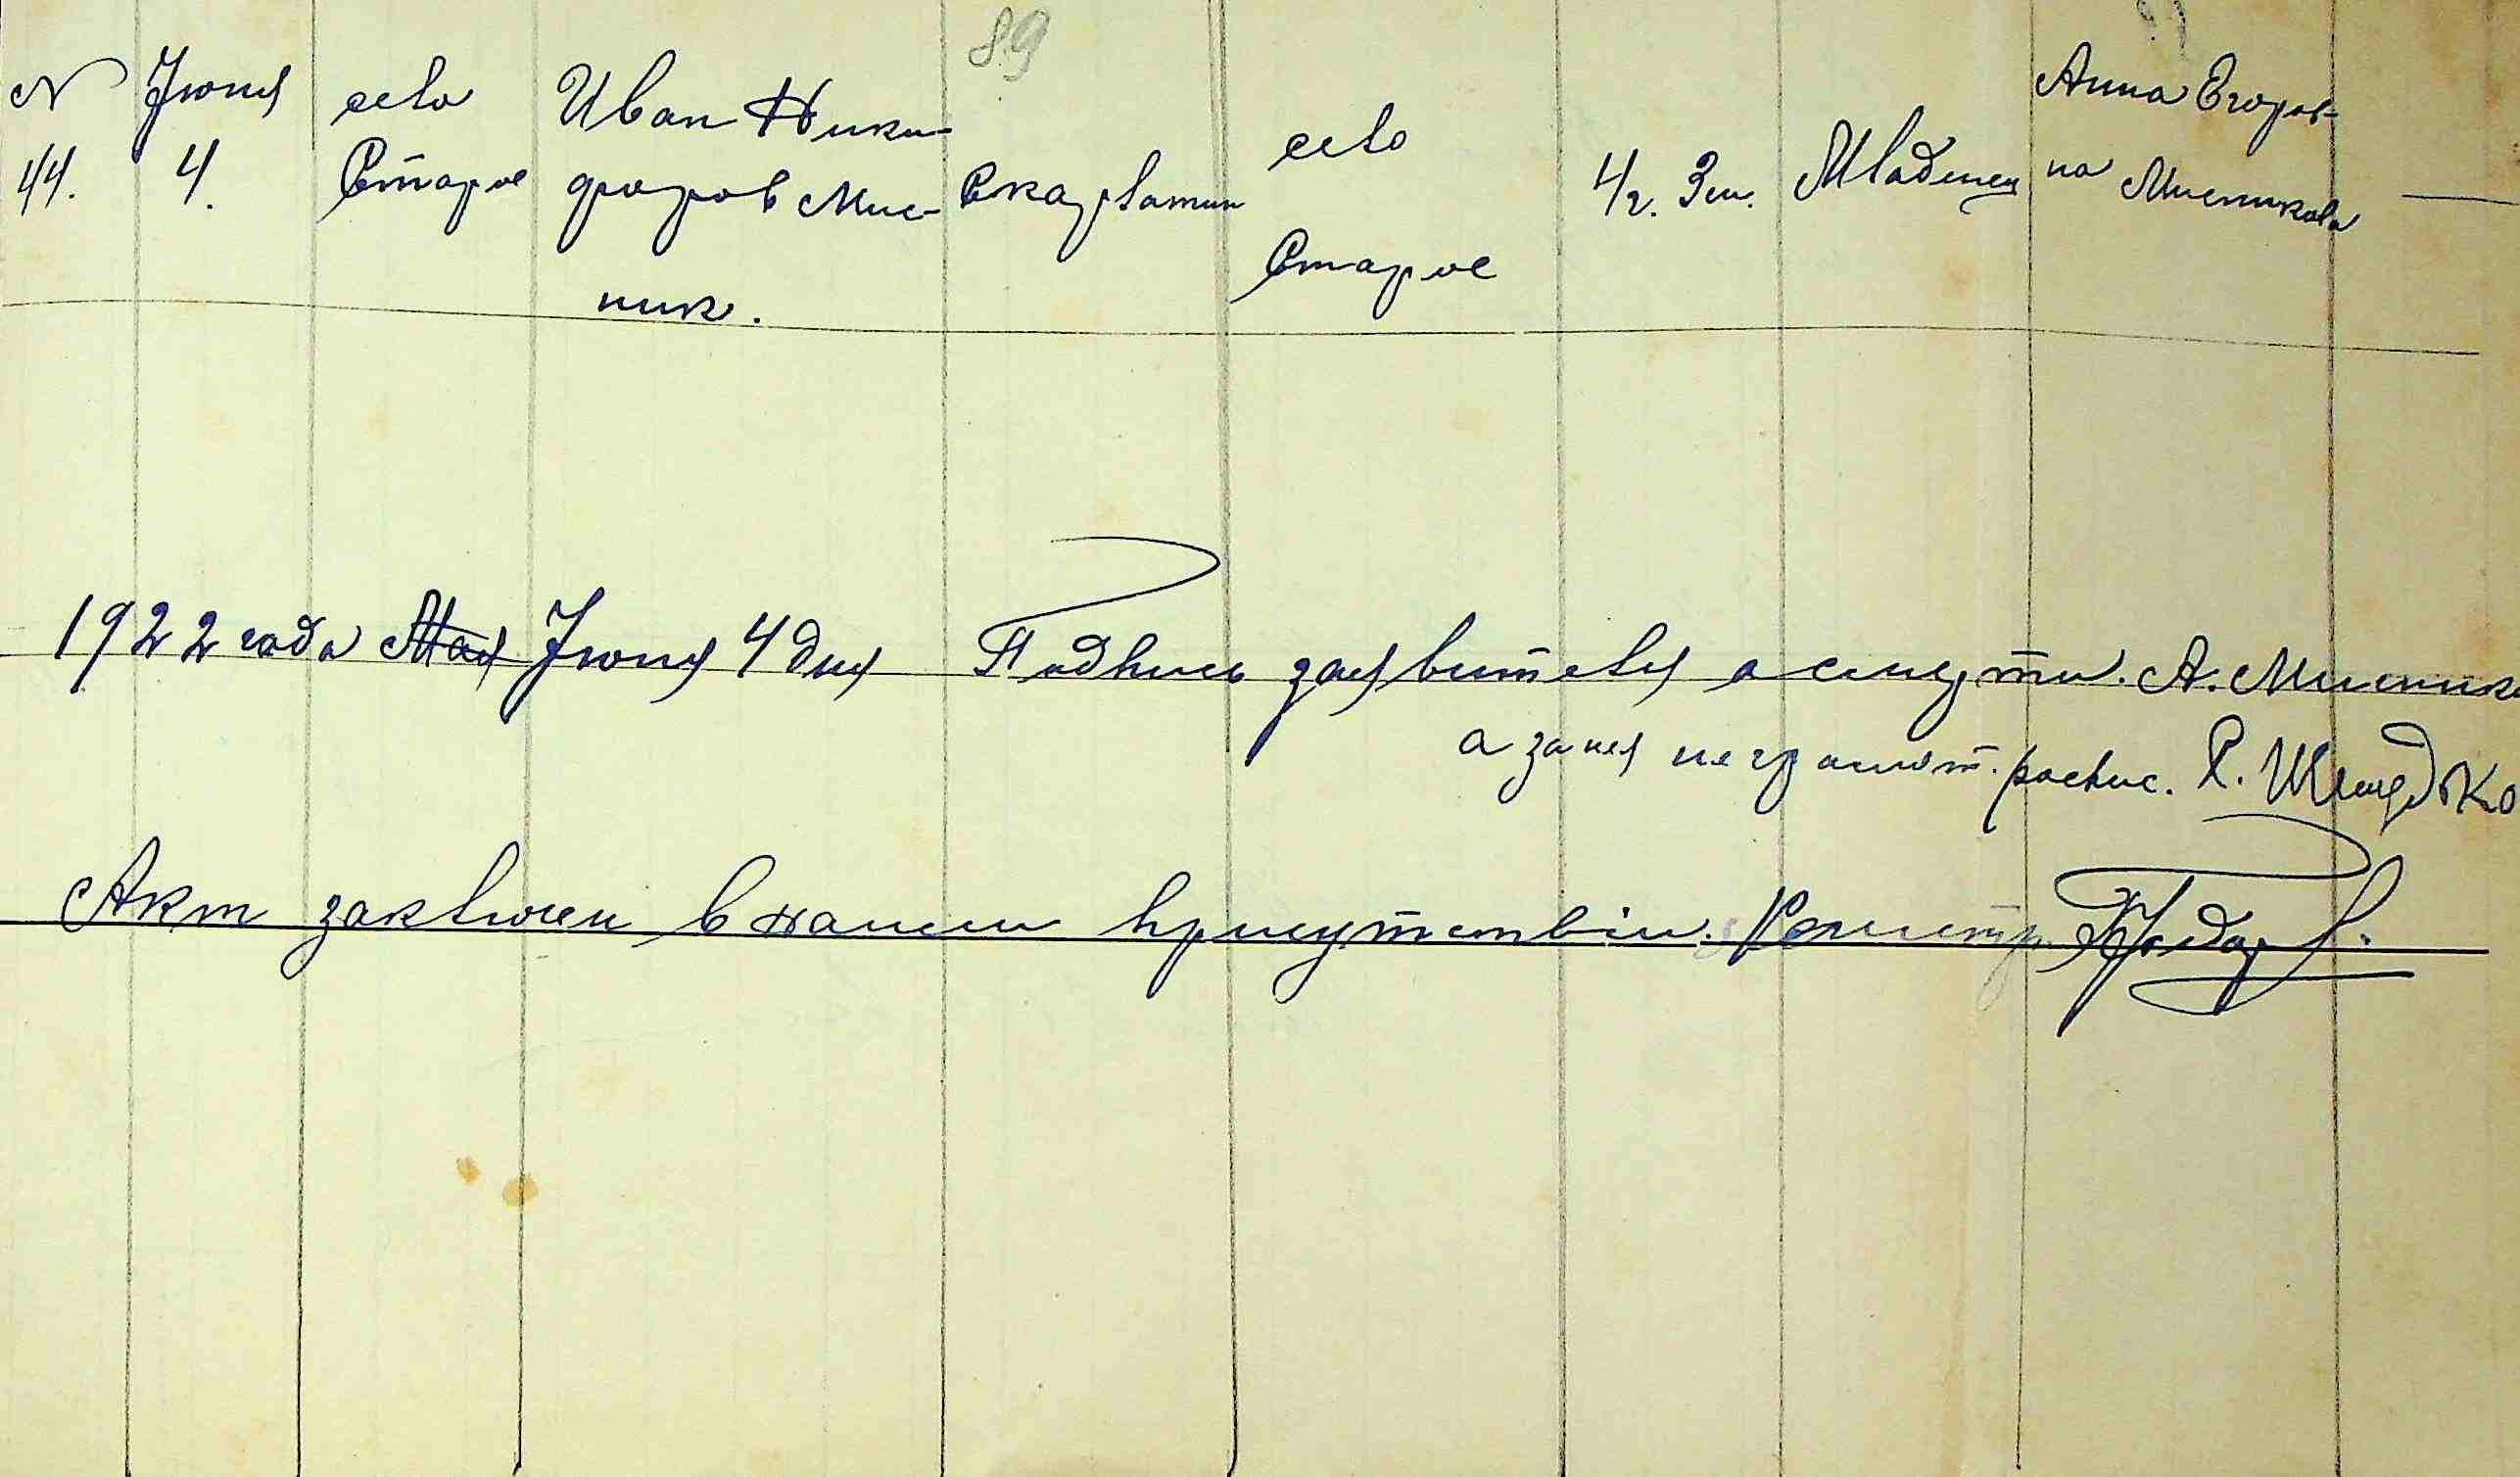 89
N 44.
Июня 4.
село Старое
Иван Ники-
форов Мис-
ник.
Скарлатин
село
Старое
4 г. 3 м.
Младенец
Анна Егоров-
на Мисникова
—
1922 года Мая Июня 4 дня Подпись заявителя о смерти. А. Миснико
а за нея неграмот. роспис. Р.
Акт заключен в нашем присутствіи. Регистр.